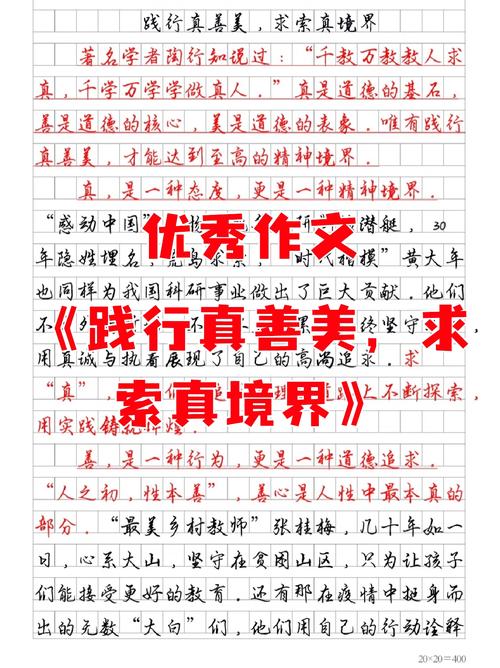 践行真善美,求索真境界
著名学者陶行知说过:“千教万教教人求
真,千学万学学做真人.”真是道德的基石,
善是道德的核心,美是道德的表象.唯有践行
真善美,才能达到至高的精神境界.
真,是一种态度,更是一种精神境界.
“感动中国” 研 潜艇,30
优秀作文
年隐姓埋名,荒岛求索, 时代楷模”黄大年
也同样为我国科研事业做出了巨大贡献.他们
不 终坚守
《践行真善美,求
用真诚与执着展现了自己的高尚追求.求
“真”, 上不断探索,
索真境界》
用实践铸就 煌.
善,是一种行为,更是一种道德追求.
“人之初,性本善”,善心是人性中最本真的
部分.“最美乡村教师”张桂梅,几十年如一
日,心系大山,坚守在贫困山区,只为让孩子
们能接受更好的教育.还有那在疫情中挺身而
出的无数“大白”们,他们用自己的行动诠释
20×20=400